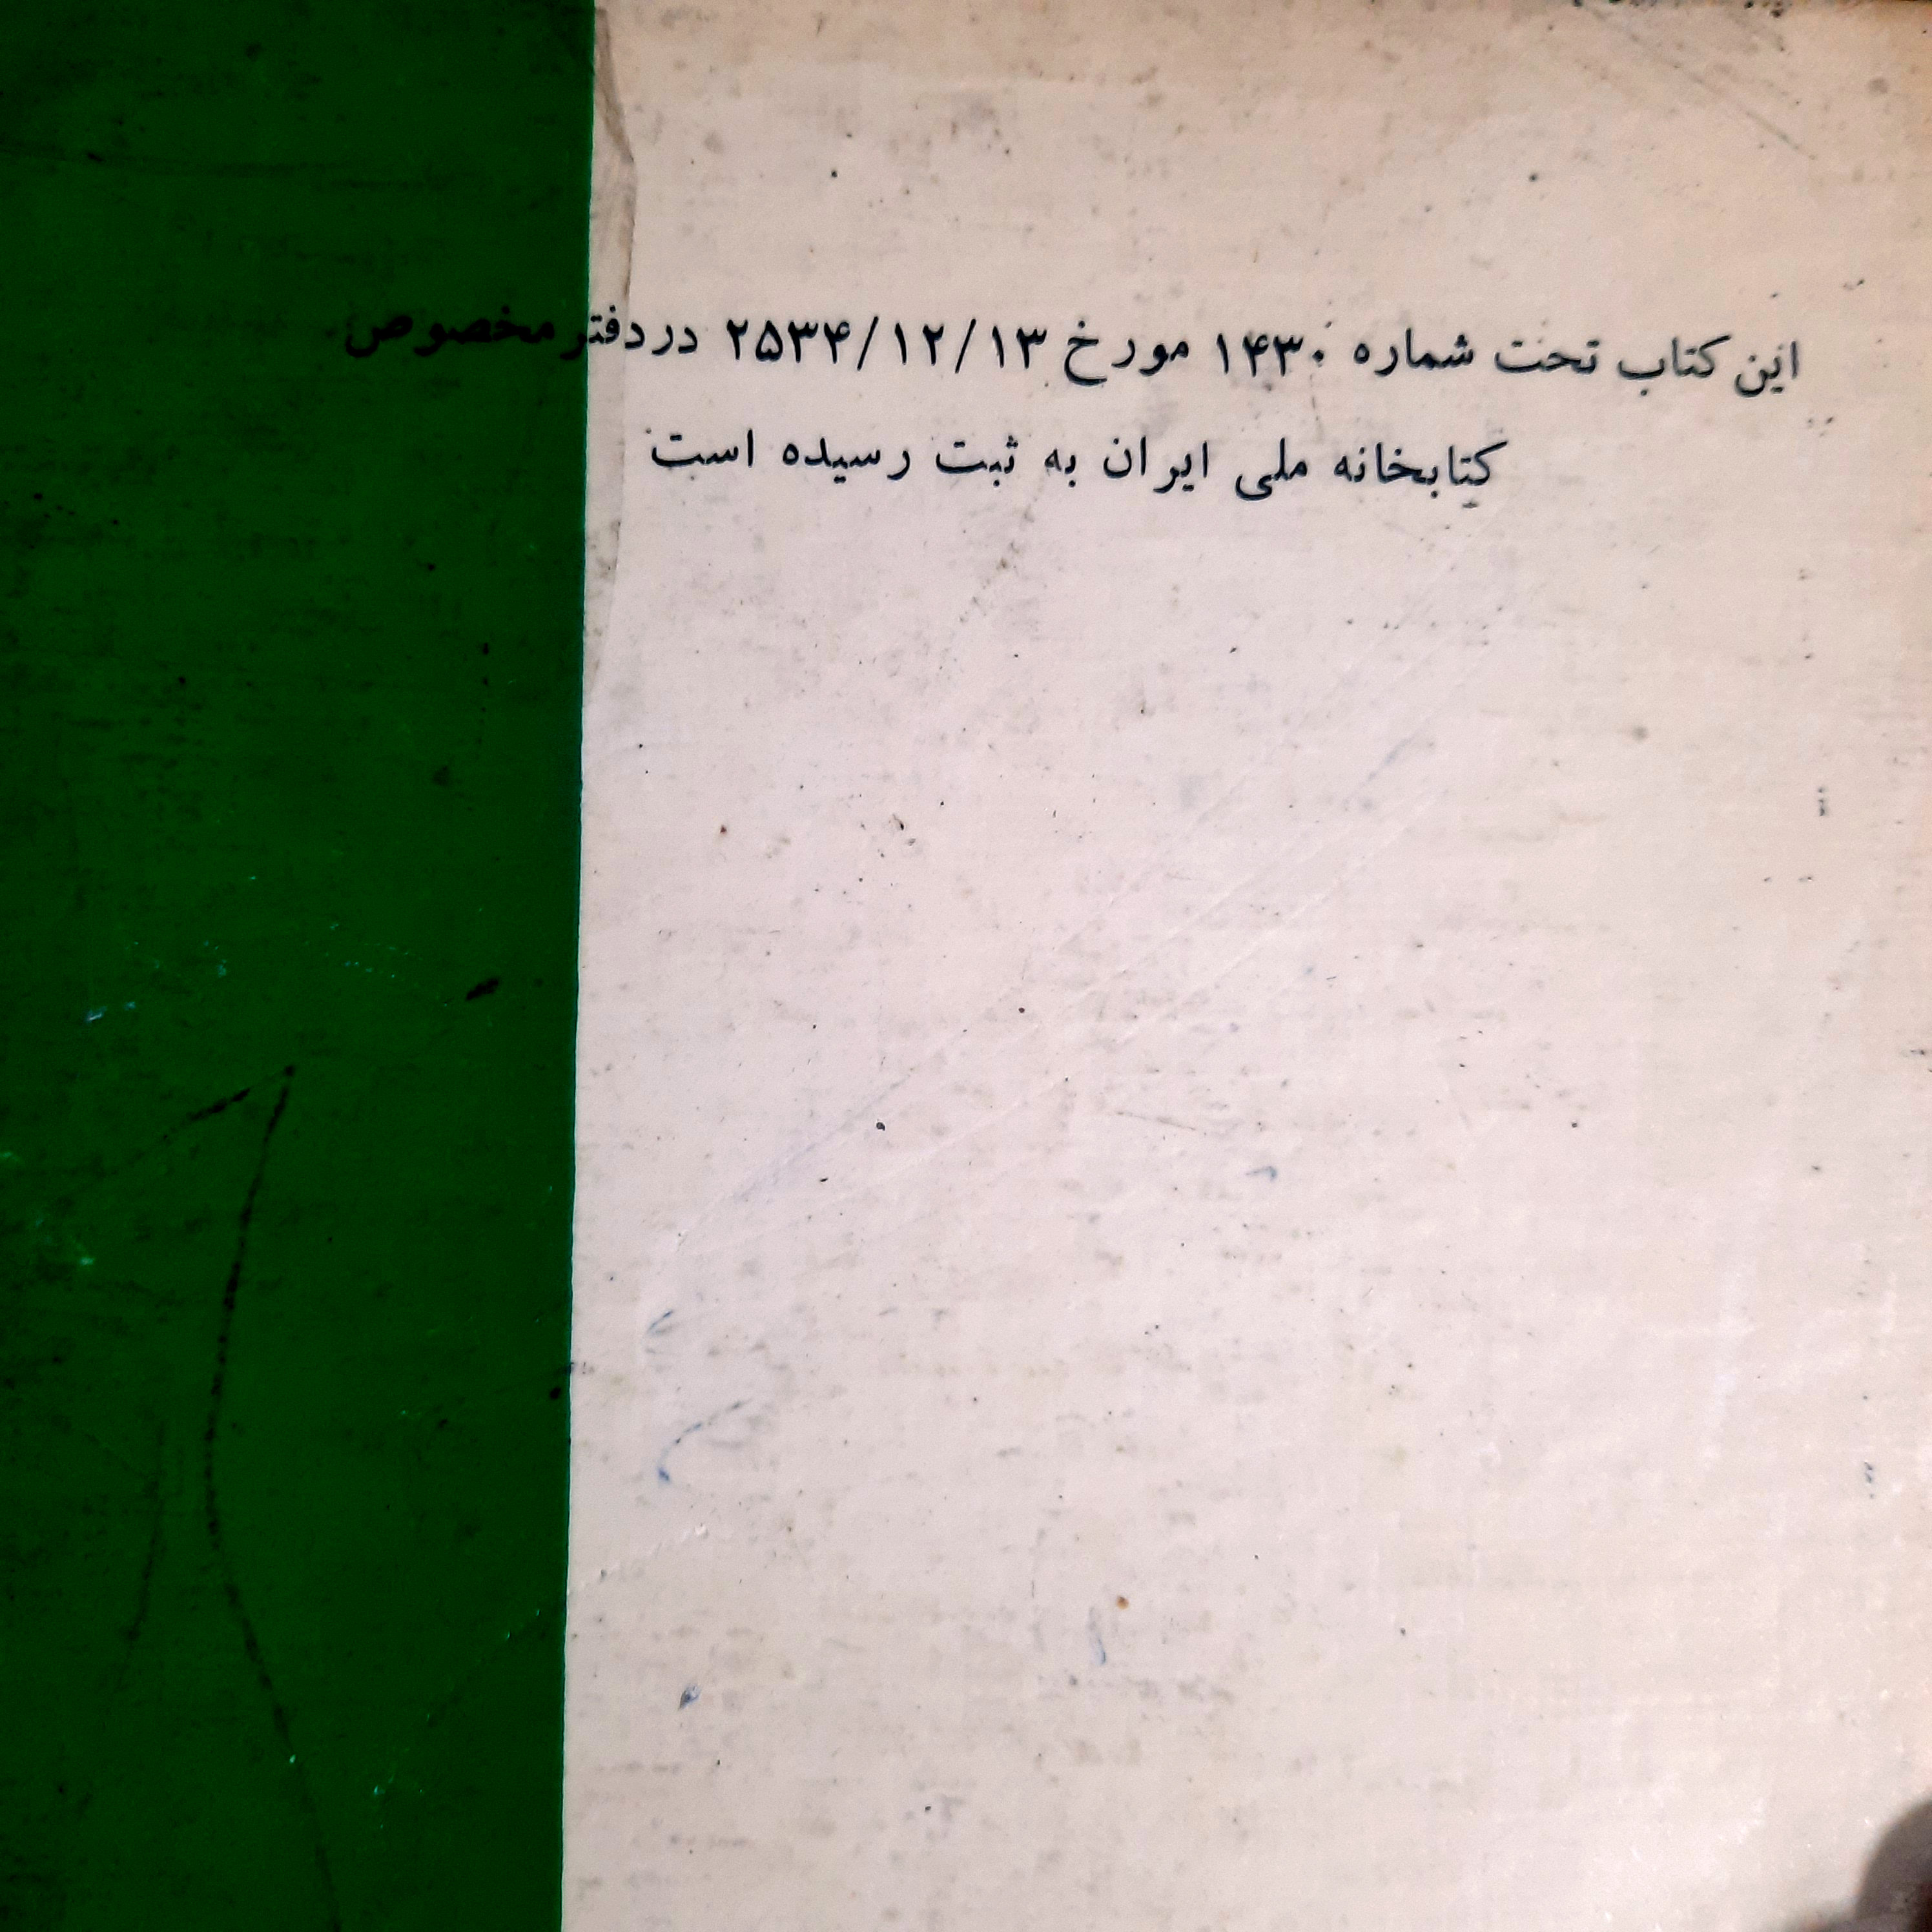 این کتاب تحت شماره ۱۴۳۰ مورخ ۲۵۳۴/۱۲/۱۳ در دفتر مخصوص
کتابخانه ملی ایران به ثبت رسیده است